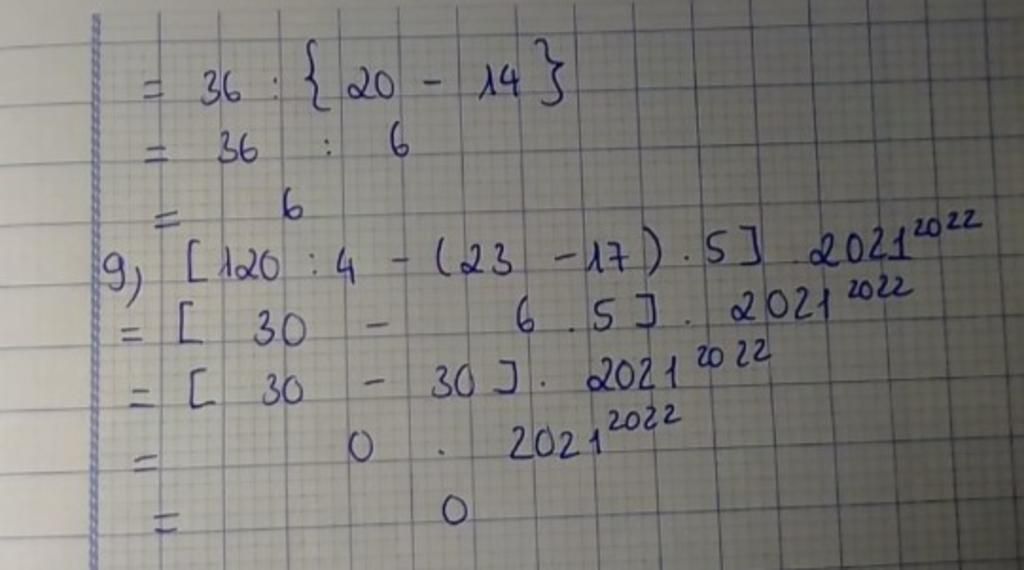 = 36 : { 20 - 14 }
= 36 : 6
= 6
9) [120 : 4 - (23 - 17) . 5] 2021²⁰²²
= [ 30 - 6 . 5 ] . 2021²⁰²²
= [ 30 - 30 ] . 2021²⁰²²
= 0 . 2021²⁰²²
= 0